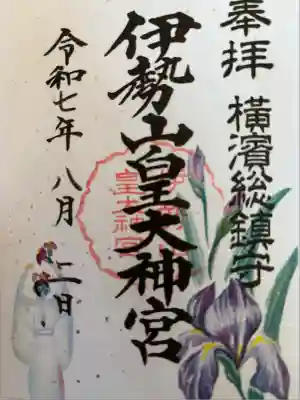 奉拝 横濱総鎮守
伊勢山皇大神宮
令和七年 八月 二日